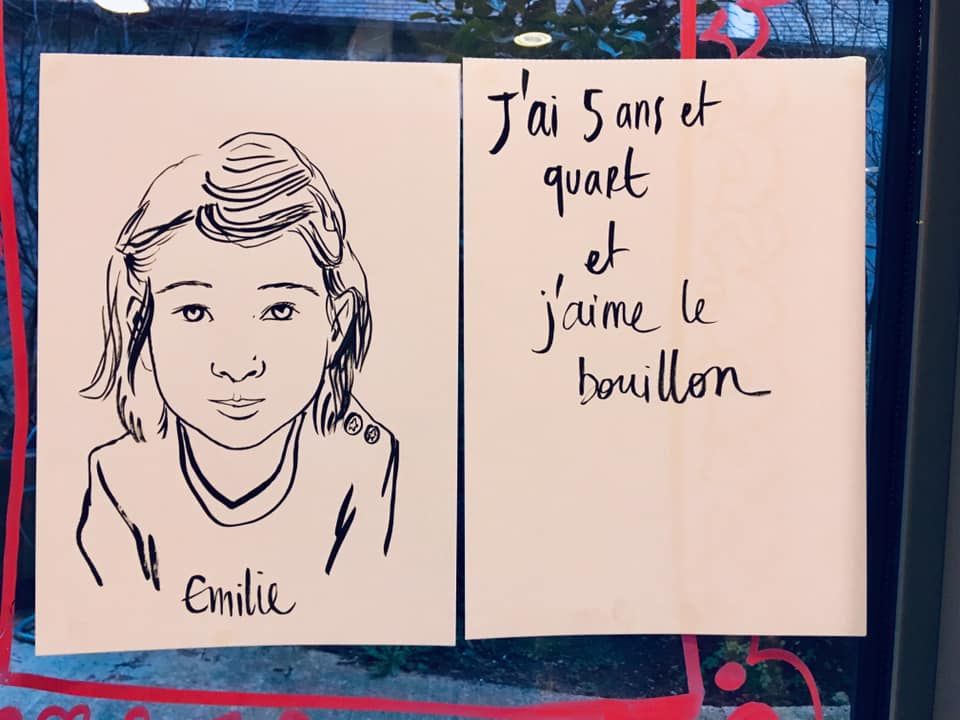 Emilie
J'ai 5 ans et
quart
et
j'aime le
bouillon